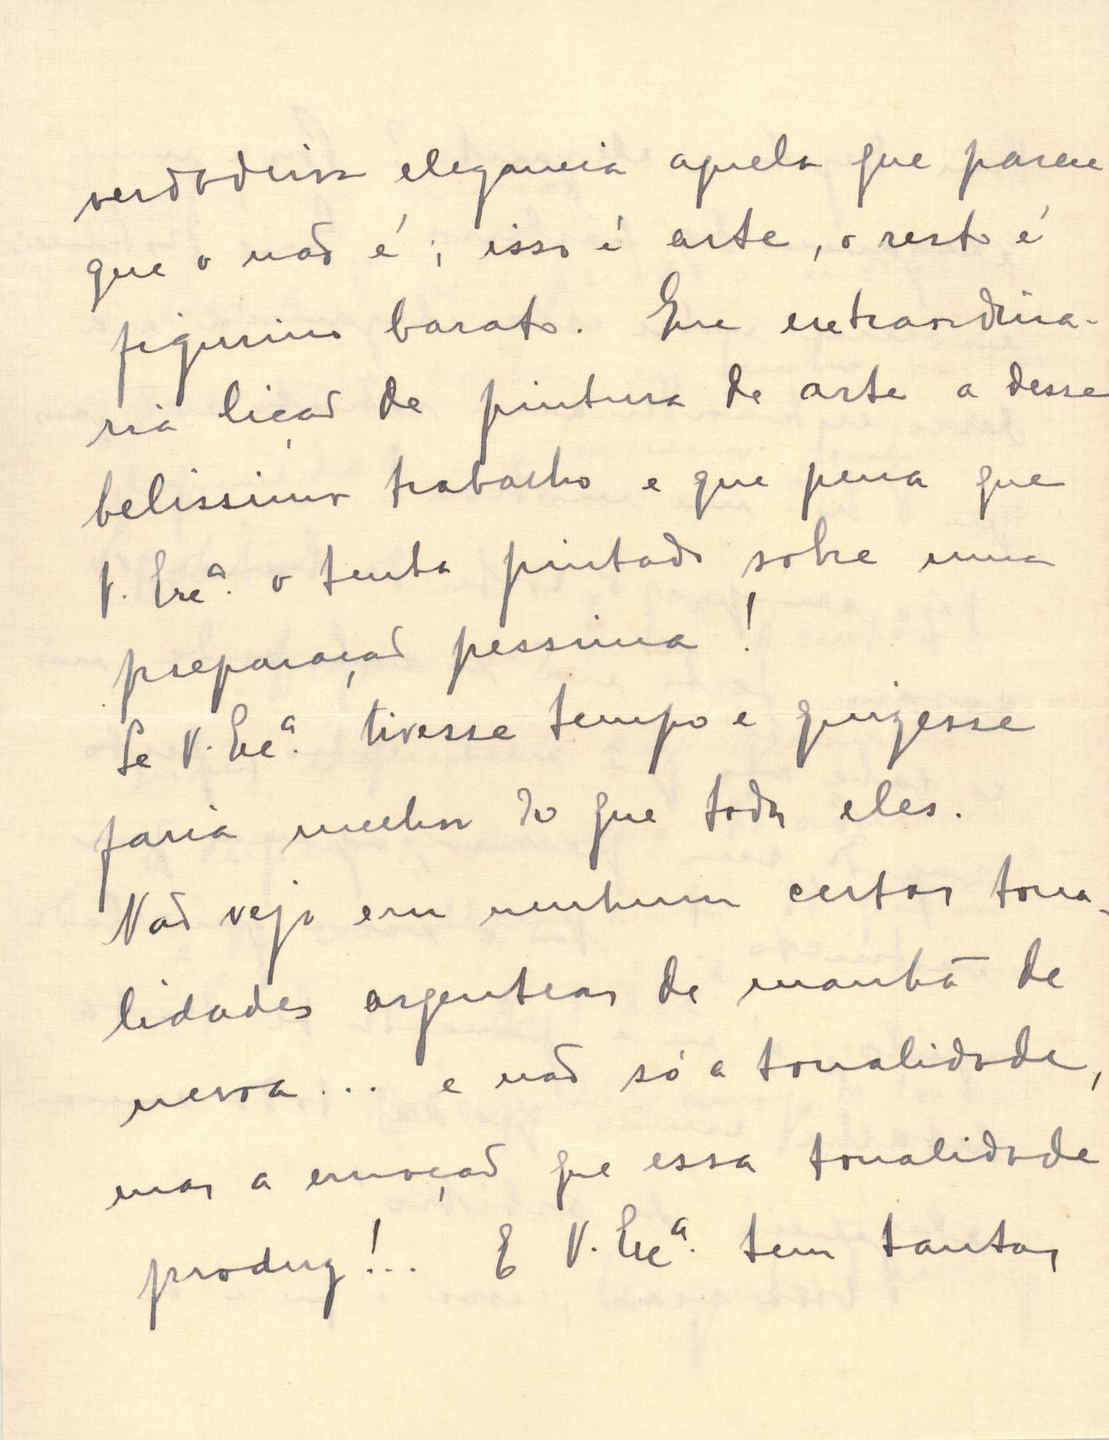 verdadeira elegancia aquela que parece
que o não é; isso é arte, o resto é
figurino barato. Que extraordina-
ria lição de pintura de arte a desse
belissimo trabalho e que pena que
V. Exª. o tenha pintado sobre uma
preparação pessima!
Se V. Exª. tivesse tempo e quizesse
faria melhor do que todos eles.
Não vejo em nenhum certas tona-
lidades argenteas de manhã de
nevoa... e não só a tonalidade,
mas a emoção que essa tonalidade
produz!... E V. Exª. tem tantas